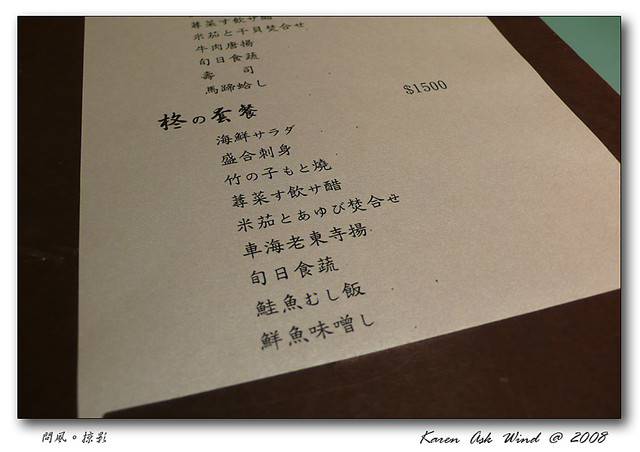 蓴菜す飲サ醋
米茄と干貝焚合せ
牛肉唐揚
旬日食蔬
壽 司
馬蹄蛤し
$1500
柊の套餐
海鮮サラダ
盛合刺身
竹の子もと燒
蓴菜す飲サ醋
米茄とあゆび焚合せ
車海老東寺揚
旬日食蔬
鮭魚むし飯
鮮魚味噌し
問風。掠影
Karen Ask Wind @ 2008